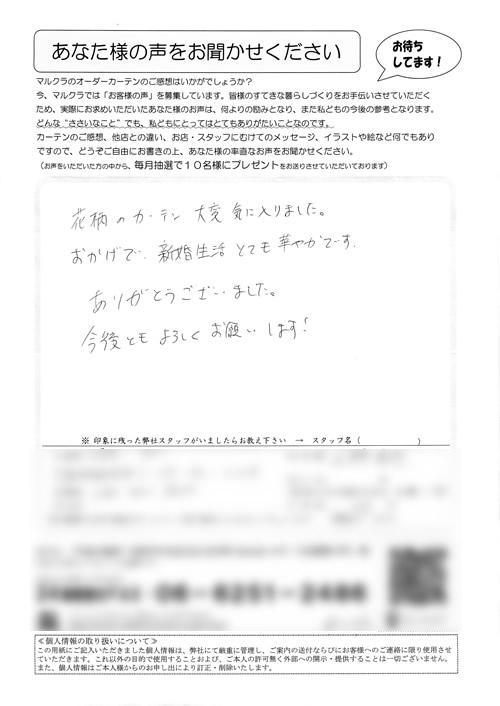 あなた様の声をお聞かせください
お待ち
してます！
マルクラのオーダーカーテンのご感想はいかがでしょうか？
今、マルクラでは「お客様の声」を募集しています。皆様のすてきな暮らしづくりをお手伝いさせていただく
ため、実際にお求めいただいたあなた様のお声は、何よりの励みとなり、また私どもの今後の参考となります。
どんな“ささいなこと”でも、私どもにとってはとてもありがたいことなのです。
カーテンのご感想、他店との違い、お店・スタッフにむけてのメッセージ、イラストや絵など何でもあり
ますので、どうぞご自由にお書きの上、あなた様の率直なお声をお聞かせください。
（お声をいただいた方の中から、毎月抽選で１０名様にプレゼントをお送りさせていただいております）
花柄のカーテン 大変 気に入りました。
おかげで、新婚生活 とても 華やかです。
ありがとうございました。
今後とも よろしく お願い します！
※ 印象に残った弊社スタッフがいましたらお教え下さい → スタッフ名（ ）
06-6251-2486
≪個人情報の取り扱いについて≫
この用紙にご記入いただきました個人情報は、弊社にて厳重に管理し、ご案内の送付ならびにお客様へのご連絡に限り使用させ
ていただきます。これ以外の目的で使用することおよび、ご本人の許可無く外部への開示・提供することは一切ございません。
また、個人情報はご本人様からのお申し出により訂正・削除いたします。